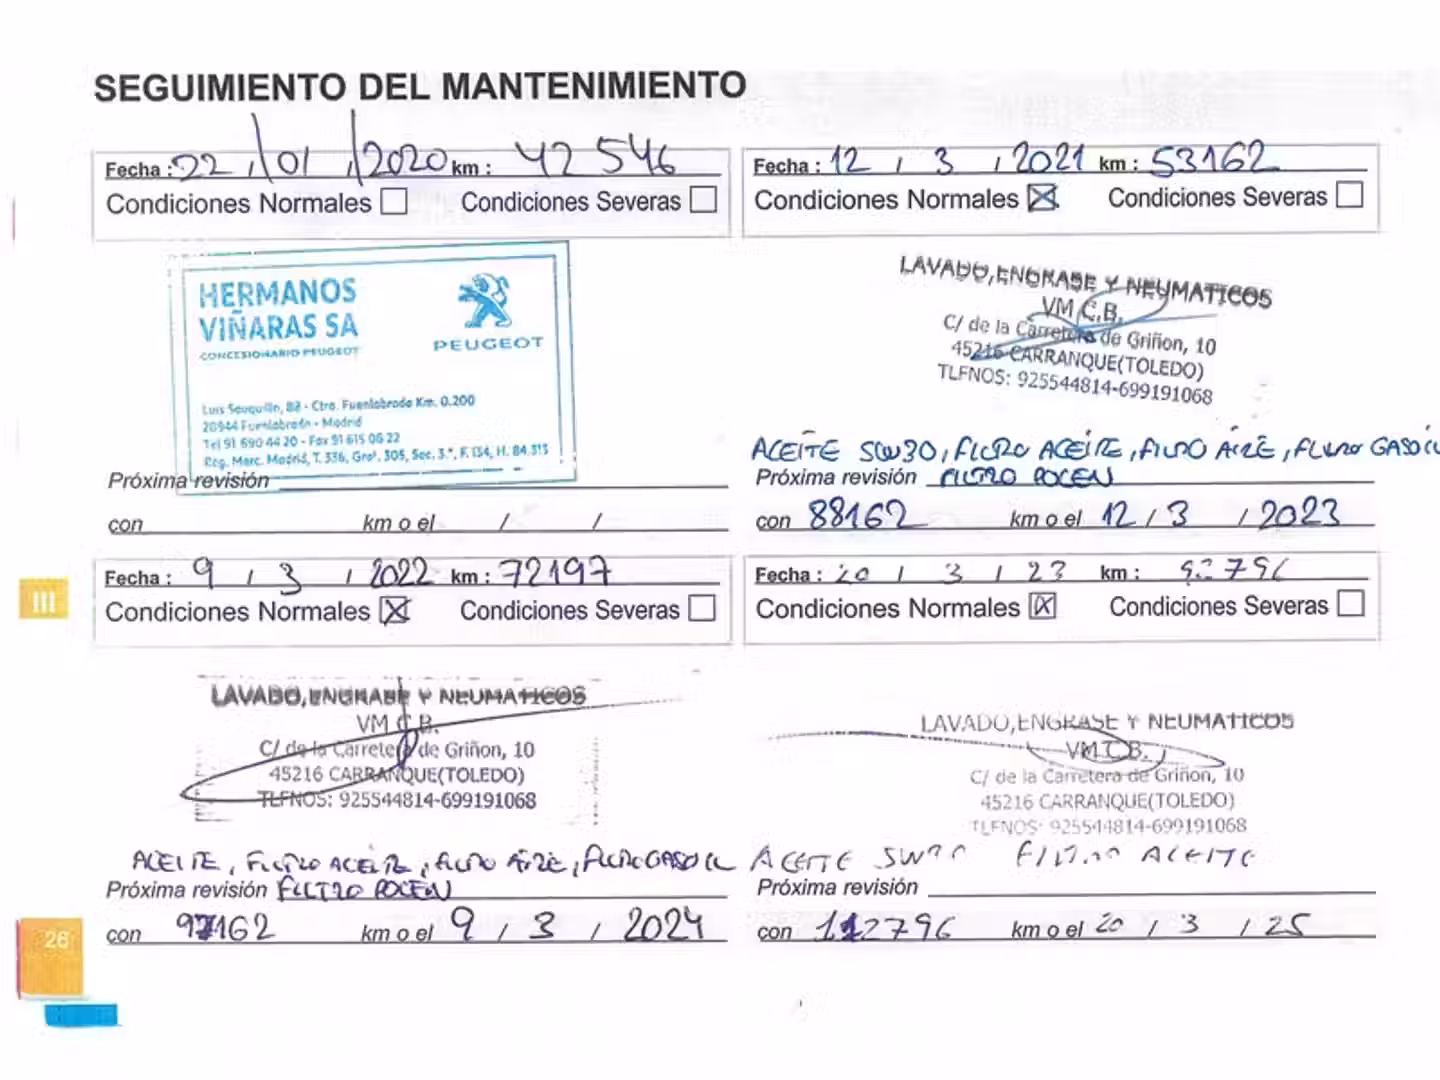 SEGUIMIENTO DEL MANTENIMIENTO
Fecha : 22 / 01 / 2020 km : 42 546
Condiciones Normales Condiciones Severas
HERMANOS
VIÑARAS SA
CONCESIONARIO PEUGEOT
PEUGEOT
Luis Sauquillo, 88 - Ctra. Fuenlabrada Km. 0.200
28944 Fuenlabrada - Madrid
Tel 91 690 44 20 - Fax 91 615 06 22
Reg. Merc. Madrid, T. 336, Gral. 305, Sec. 3.ª, F. 134, H. 84.315
Próxima revisión
con km o el / /
Fecha : 12 / 3 / 2021 km : 53162
Condiciones Normales Condiciones Severas
LAVADO,ENGRASE Y NEUMATICOS
VM C.B.
C/ de la Carretera de Griñon, 10
45216 CARRANQUE(TOLEDO)
TLFNOS: 925544814-699191068
ACEITE 5W30, FILTRO ACEITE, FILTRO AIRE, FILTRO GASOIL
Próxima revisión FILTRO POLEN
con 88162 km o el 12 / 3 / 2023
III
Fecha : 9 / 3 / 2022 km : 72197
Condiciones Normales Condiciones Severas
LAVADO,ENGRASE Y NEUMATICOS
VM C.B.
C/ de la Carretera de Griñon, 10
45216 CARRANQUE(TOLEDO)
TLFNOS: 925544814-699191068
ACEITE, FILTRO ACEITE, FILTRO AIRE, FILTRO GASOIL
Próxima revisión FILTRO POLEN
con 97162 km o el 9 / 3 / 2024
Fecha : 20 / 3 / 23 km : 92796
Condiciones Normales Condiciones Severas
LAVADO,ENGRASE Y NEUMATICOS
VM C.B.
C/ de la Carretera de Griñon, 10
45216 CARRANQUE(TOLEDO)
TLFNOS: 925544814-699191068
ACEITE 5W30 FILTRO ACEITE
Próxima revisión
con 112796 km o el 20 / 3 / 25
26